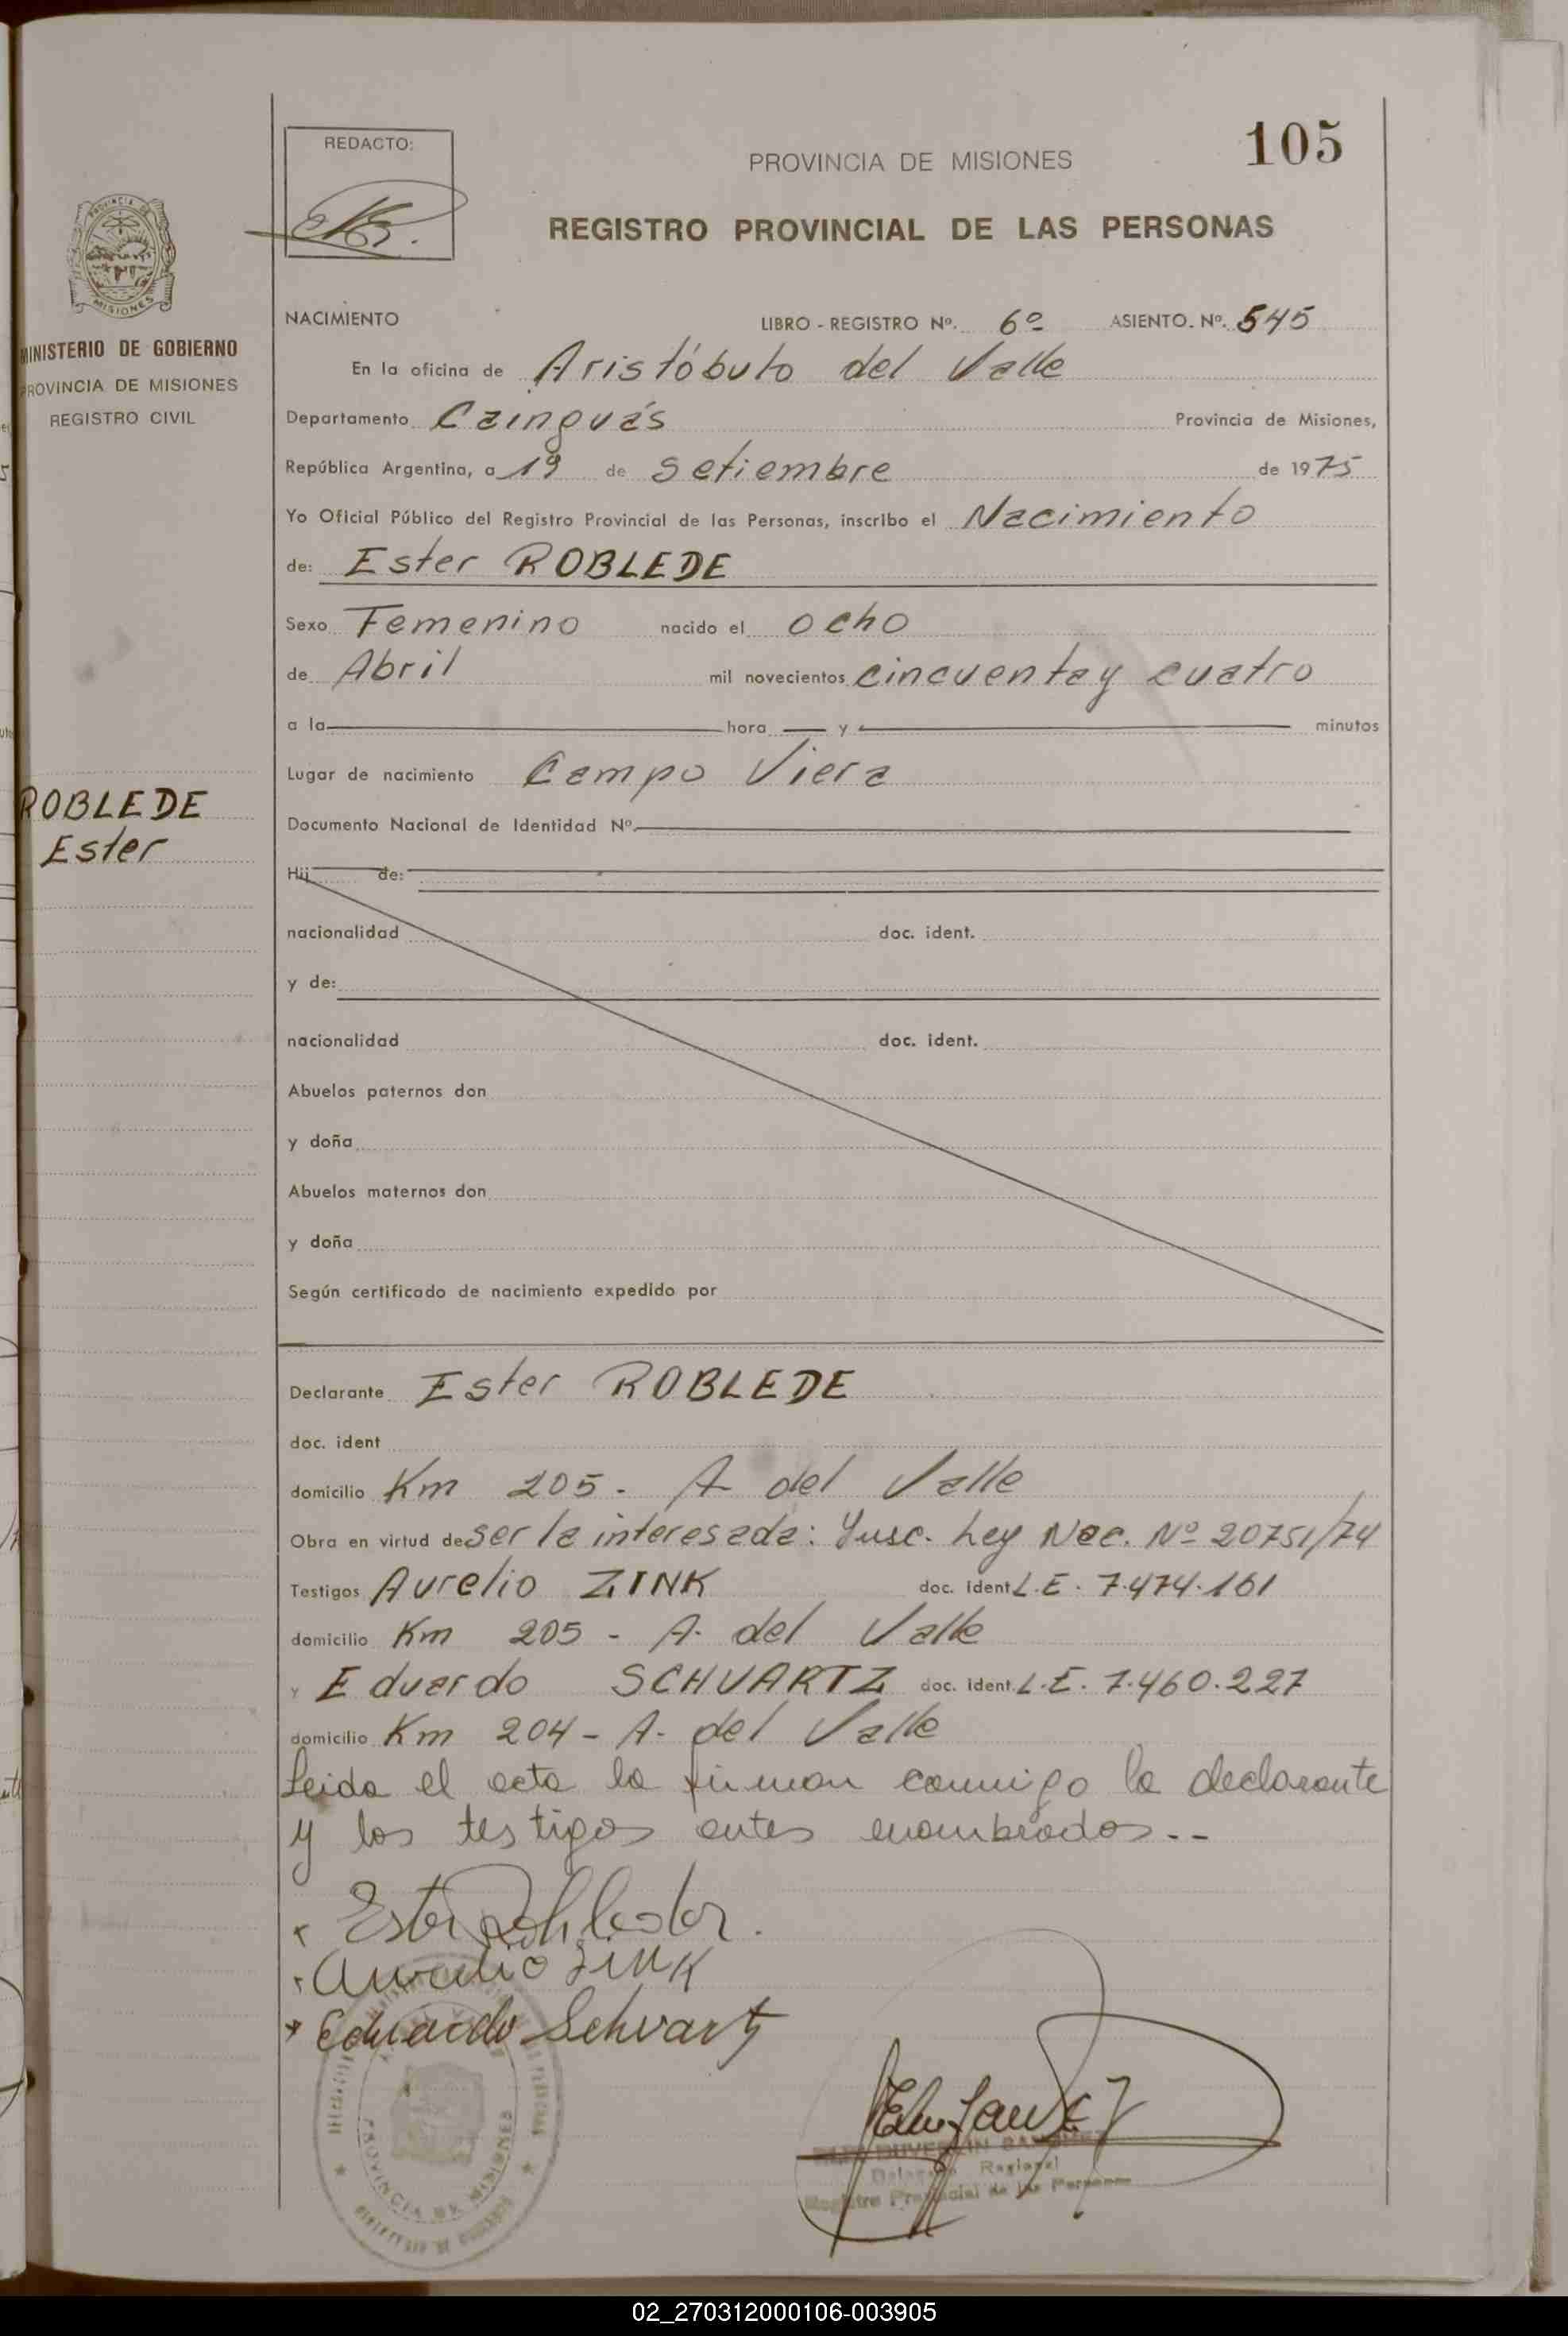 105
REDACTO:
PROVINCIA DE MISIONES
REGISTRO PROVINCIAL DE LAS PERSONAS
PROVINCIA DE
MISIONES
MINISTERIO DE GOBIERNO
PROVINCIA DE MISIONES
REGISTRO CIVIL
NACIMIENTO LIBRO - REGISTRO Nº. 6º ASIENTO. Nº. 545
En la oficina de Aristóbulo del Valle
Departamento Cainguás Provincia de Misiones,
República Argentina, a 19 de Setiembre de 1975
Yo Oficial Público del Registro Provincial de las Personas, inscribo el Nacimiento
de: Ester ROBLEDE
Sexo Femenino nacido el ocho
de Abril mil novecientos cincuenta y cuatro
a la hora y minutos
Lugar de nacimiento Campo Viera
ROBLEDE
Ester
Documento Nacional de Identidad Nº.
Hij de:
nacionalidad doc. ident.
y de:
nacionalidad doc. ident.
Abuelos paternos don
y doña
Abuelos maternos don
y doña
Según certificado de nacimiento expedido por
Declarante Ester ROBLEDE
doc. ident
domicilio Km 205 - A del Valle
Obra en virtud de ser la interesada: Ynsc. Ley Nac. Nº 20751/74
Testigos Aurelio ZINK doc. ident L.E. 7.474.161
domicilio Km 205 - A. del Valle
y Eduardo SCHVARTZ doc. ident. L.E. 7.460.227
domicilio Km 204 - A. del Valle
Leida el acta la firman conmigo la declarante
y los testigos antes nombrados. --
Ester
Aurelio Zink
Eduardo Schvartz
PROVINCIA DE MISIONES
Delegado Regional
Registro Provincial de las Personas
02_270312000106-003905